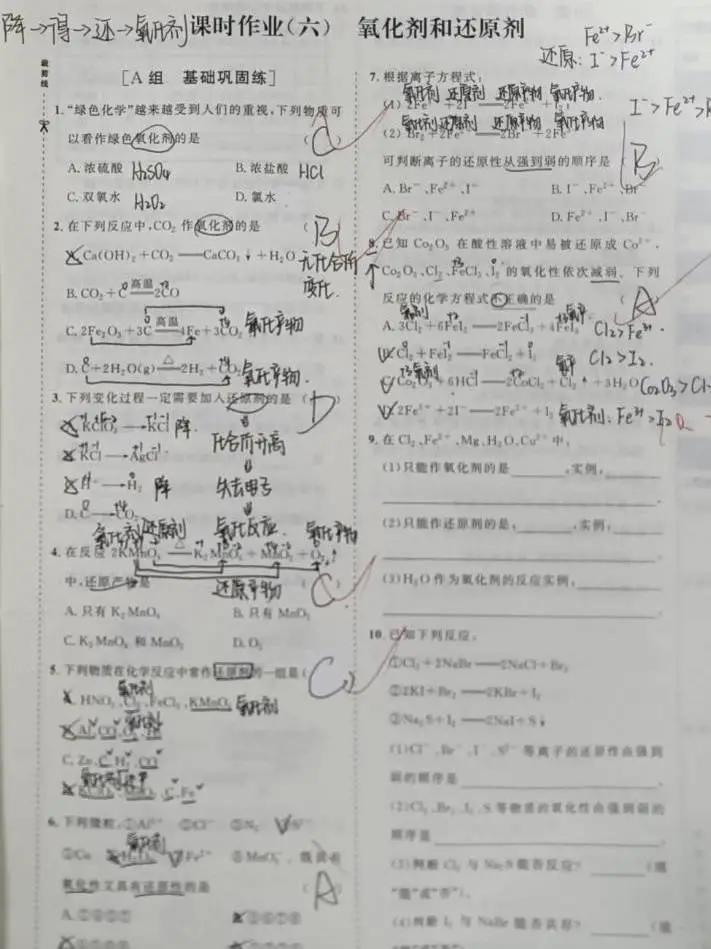 降→得→还→氧化剂
课时作业(六) 氧化剂和还原剂
Fe²⁺>Br⁻
还原: I⁻>Fe²⁺
裁剪线
[A组 基础巩固练]
1.“绿色化学”越来越受到人们的重视,下列物质可
以看作绿色氧化剂的是 ( C )
A.浓硫酸 H₂SO₄ B.浓盐酸 HCl
C.双氧水 H₂O₂ D.氯水
2.在下列反应中,CO₂ 作氧化剂的是 ( B )
A.Ca(OH)₂+CO₂══CaCO₃↓+H₂O 无化合价
变化.
B.CO₂+C 高温 2CO
C.2Fe₂O₃+3C 高温 4Fe+3CO₂ 氧化产物
D.C+2H₂O(g) △ 2H₂+CO₂ 氧化产物.
3.下列变化过程一定需要加入还原剂的是 ( D )
A.KClO₃→KCl 降
化合价升高
B.KCl→AgCl
C.H⁺→H₂ 降 失去电子
D.C→CO₂ 氧化反应.
氧化剂 还原剂 氧化产物
4.在反应 2KMnO₄ △ K₂MnO₄+MnO₂+O₂↑
中,还原产物是 还原产物 ( C )
A.只有 K₂MnO₄ B.只有 MnO₂
C.K₂MnO₄ 和 MnO₂ D.O₂
5.下列物质在化学反应中常作还原剂的一组是( C
氧化剂
A.HNO₃、Cl₂、FeCl₃、KMnO₄ 氧化剂
C.Zn、C、H₂、CO
氧化剂
6.下列微粒,①Al³⁺ ②Cl⁻ ③N₂
氧化剂
氧化性又具有还原性的是 ( A )
7.根据离子方程式:
氧化剂 还原剂 还原产物 氧化产物.
(1)2Fe³⁺+2I⁻══2Fe²⁺+I₂;
I⁻>Fe²⁺>
氧化剂 还原剂 还原产物 氧化产物
(2)Br₂+2Fe²⁺══2Br⁻+2Fe³⁺
可判断离子的还原性从强到弱的顺序是 ( B
A.Br⁻、Fe²⁺、I⁻ B.I⁻、Fe²⁺、Br⁻
C.Br⁻、I⁻、Fe²⁺ D.Fe²⁺、I⁻、Br⁻
8.已知 Co₂O₃ 在酸性溶液中易被还原成 Co²⁺,
Co₂O₃、Cl₂、FeCl₃、I₂ 的氧化性依次减弱。下列
反应的化学方程式不正确的是 ( A )
A.3Cl₂+6FeI₂══2FeCl₃+4FeI₃ Cl₂>Fe³⁺.
B.Cl₂+FeI₂══FeCl₂+I₂ Cl₂>I₂.
C.Co₂O₃+6HCl══2CoCl₂+Cl₂↑+3H₂O Co₂O₃>Cl
D.2Fe³⁺+2I⁻══2Fe²⁺+I₂ 氧化剂: Fe³⁺>I₂
9.在 Cl₂、Fe²⁺、Mg、H₂O、Cu²⁺ 中,
(1)只能作氧化剂的是______,实例:
(2)只能作还原剂的是:______,实例:
(3)H₂O 作为氧化剂的反应实例:
10.已知下列反应。
①Cl₂+2NaBr══2NaCl+Br₂
②2KI+Br₂══2KBr+I₂
③Na₂S+I₂══2NaI+S↓
(1)Cl⁻、Br⁻、I⁻、S²⁻ 等离子的还原性由强到
弱的顺序是
(2)Cl₂、Br₂、I₂、S 等物质的氧化性由强到弱的
顺序是
(3)判断 Cl₂ 与 Na₂S 能否反应?______(填
“能”或“否”)。
(4)判断 I₂ 与 NaBr 能否共存?______(填